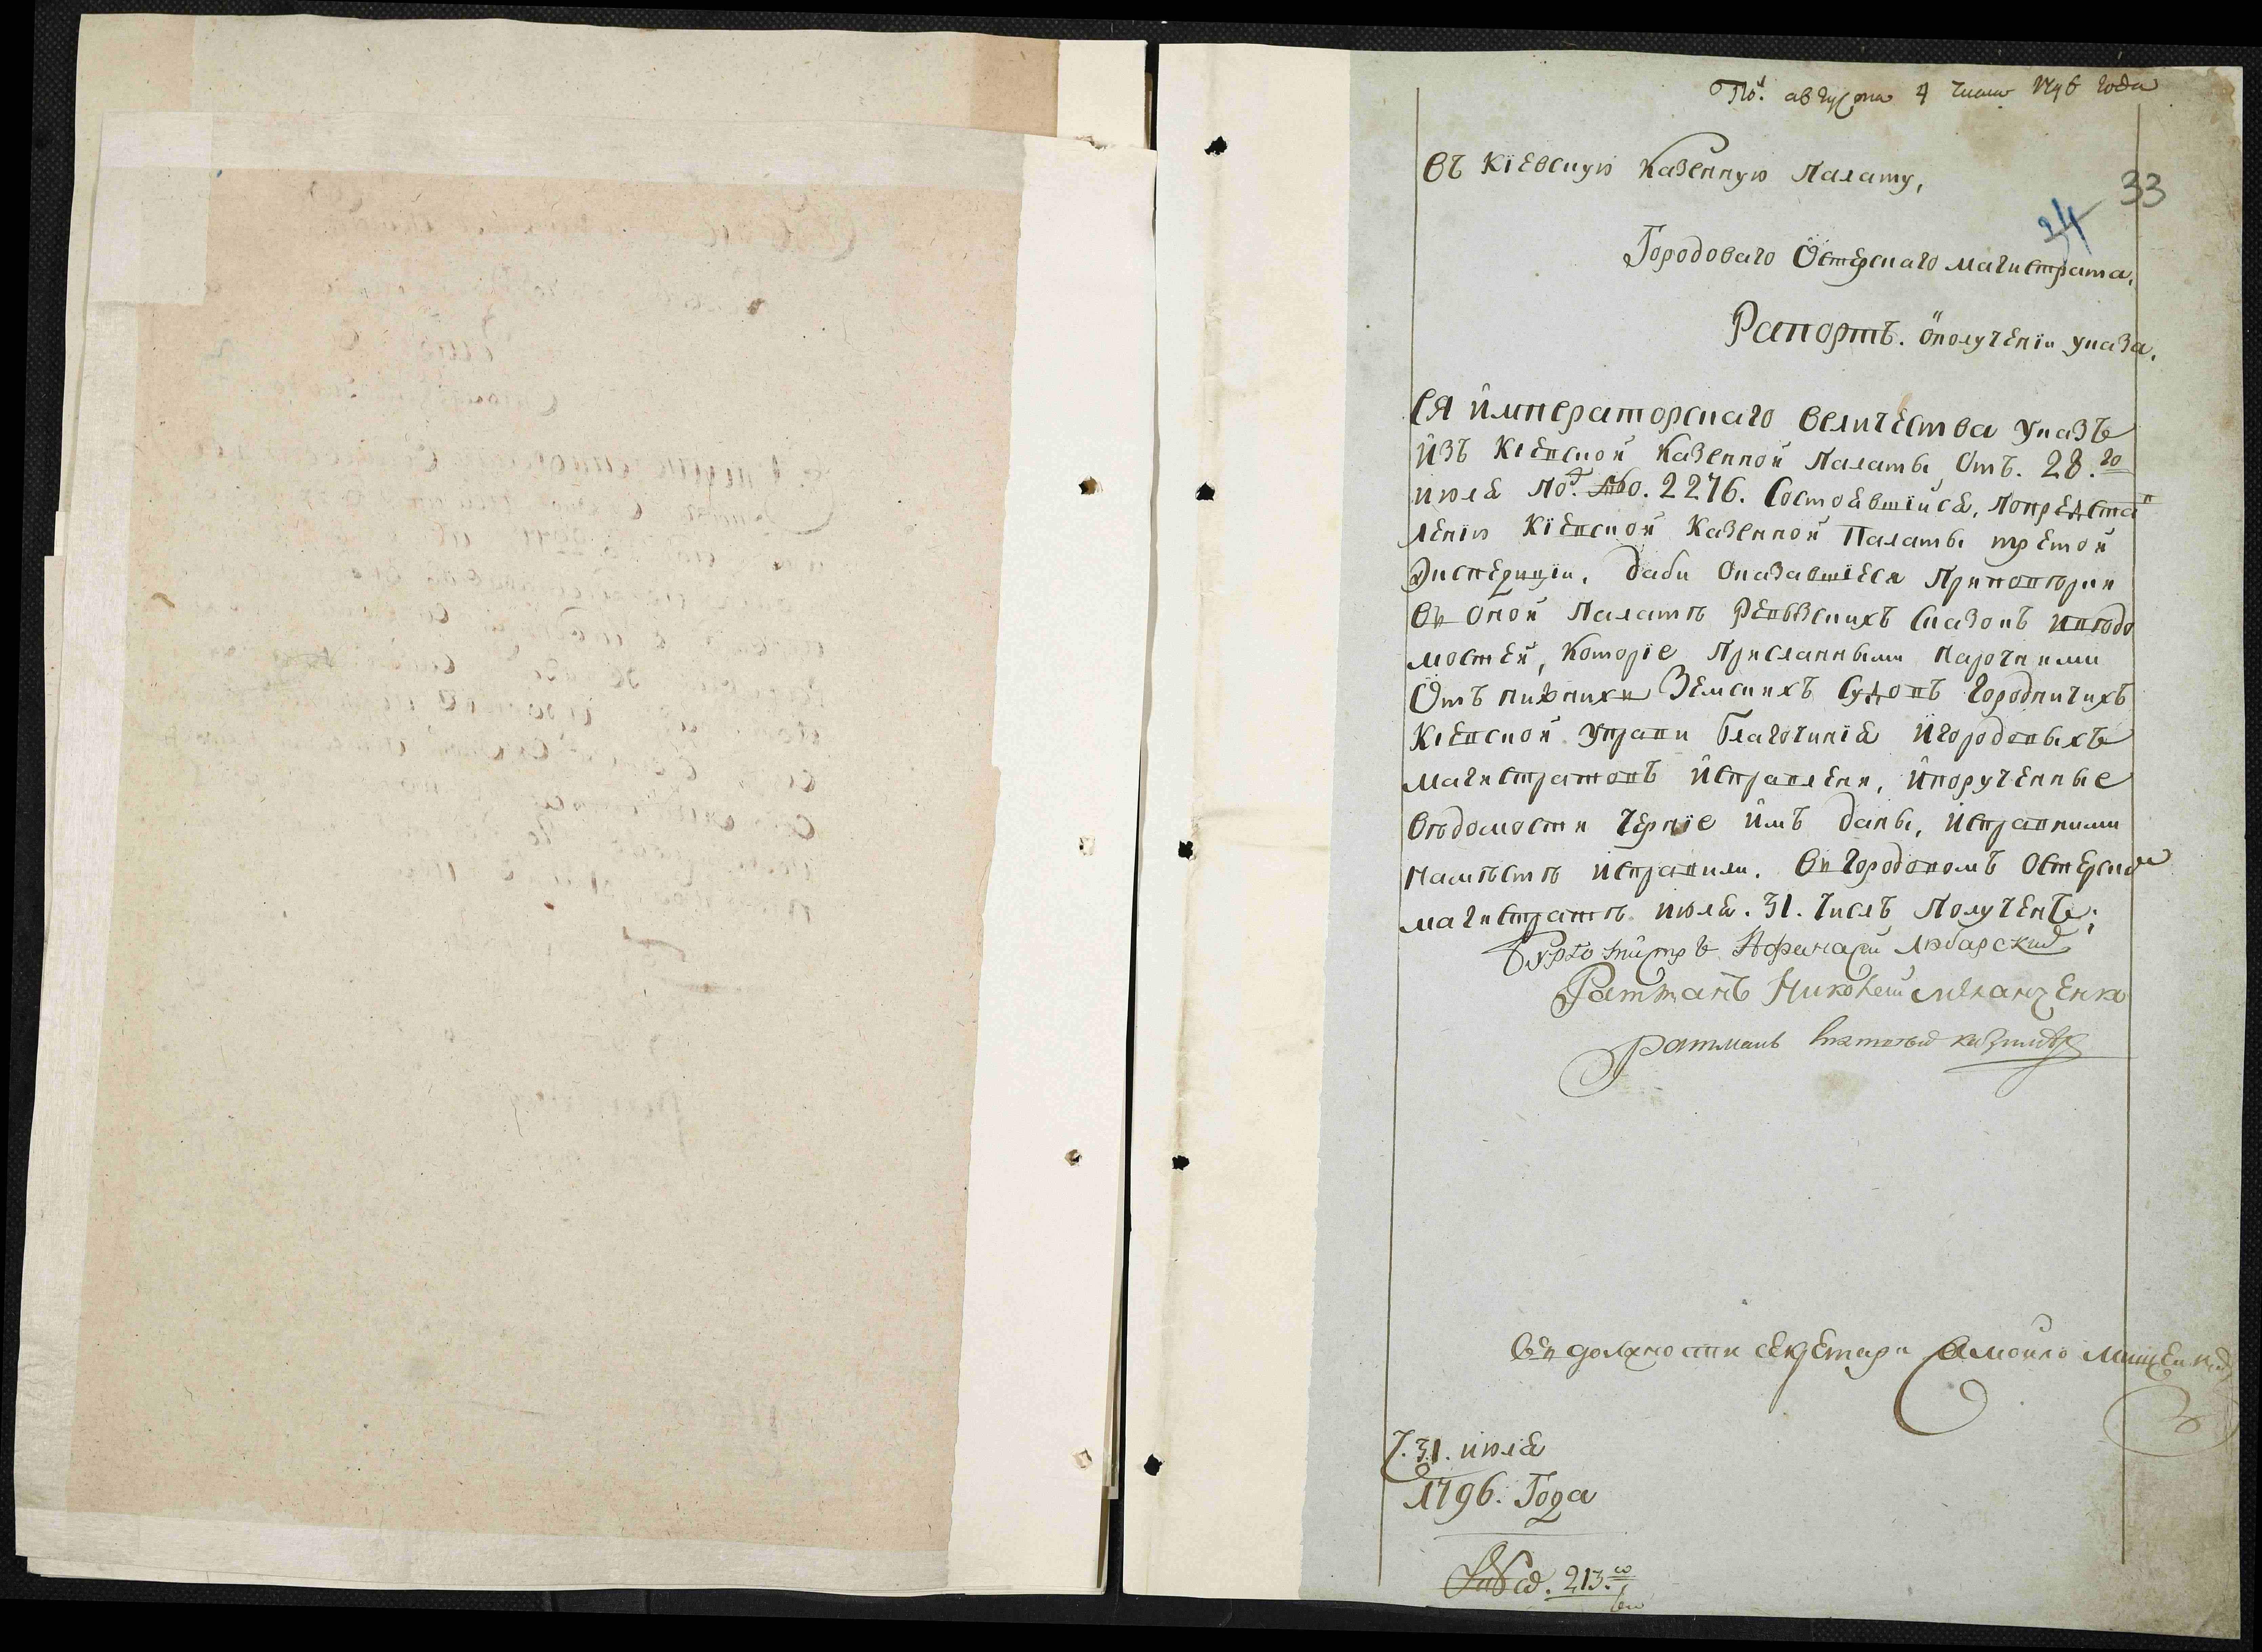 По.ᵈ августа 4 числа 1796 года
33
24
Въ Кіевскую Казенную Палату,
Городоваго Остерскаго магистрата,
Рапортъ. ополученіи указа.
ЕЯ императорскаго величества указъ
изъ Кіевской казенной палаты отъ. 28.го
июля по.ᵈ №о. 2276. состоявшійся, попредстав
ленію Кіевской Казенной Палаты третой
Экспедиціи, даби оказавшіеся приповѣрки
въ оной палатѣ Ревѣзскихъ сказокъ ивѣдо
мостей, которіе присланными нарочними
отъ нижнихъ Земскихъ судовъ городничихъ
Кіевской управи благочинія игородовыхъ
магистратовъ исправлени, ипорученные
вѣдомости черніе имъ даны, исправними
намѣстѣ исправили. въ городовомъ Остерском
магистратѣ июля. 31. числъ полученъ;
Бургомистръ Афанасий Любарский
Ратманъ Николай
Ратманъ
въ должности секретаря Самойло
Ч. 31. июля
1796. Года
№о. 213.